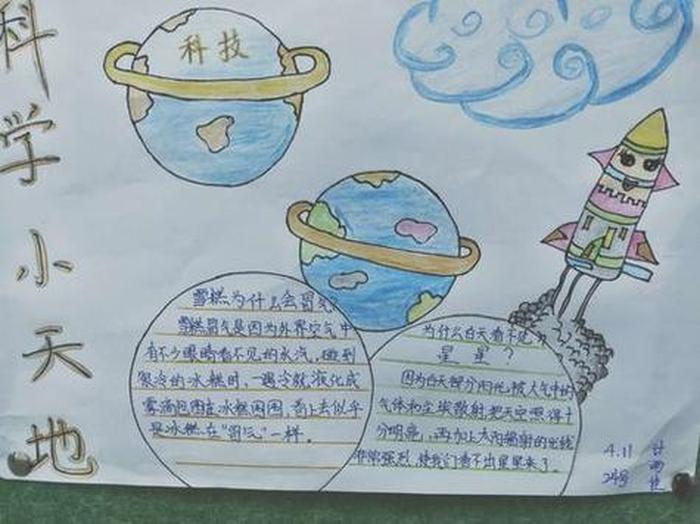 科学小天地
科技
雪糕为什么会冒气?
雪糕冒气是因为外界空气中
有不少眼睛看不见的水汽,碰到
很冷的冰糕时,一遇冷就液化成
雾滴包围在冰糕周围,看上去似乎
是冰糕在“冒气”一样。
为什么白天看不见
星星?
因为白天部分阳光被大气中的
气体和尘埃散射,把天空照得十
分明亮,再加上太阳辐射的光线
非常强烈,使我们看不出星星来了。
4.11
24号